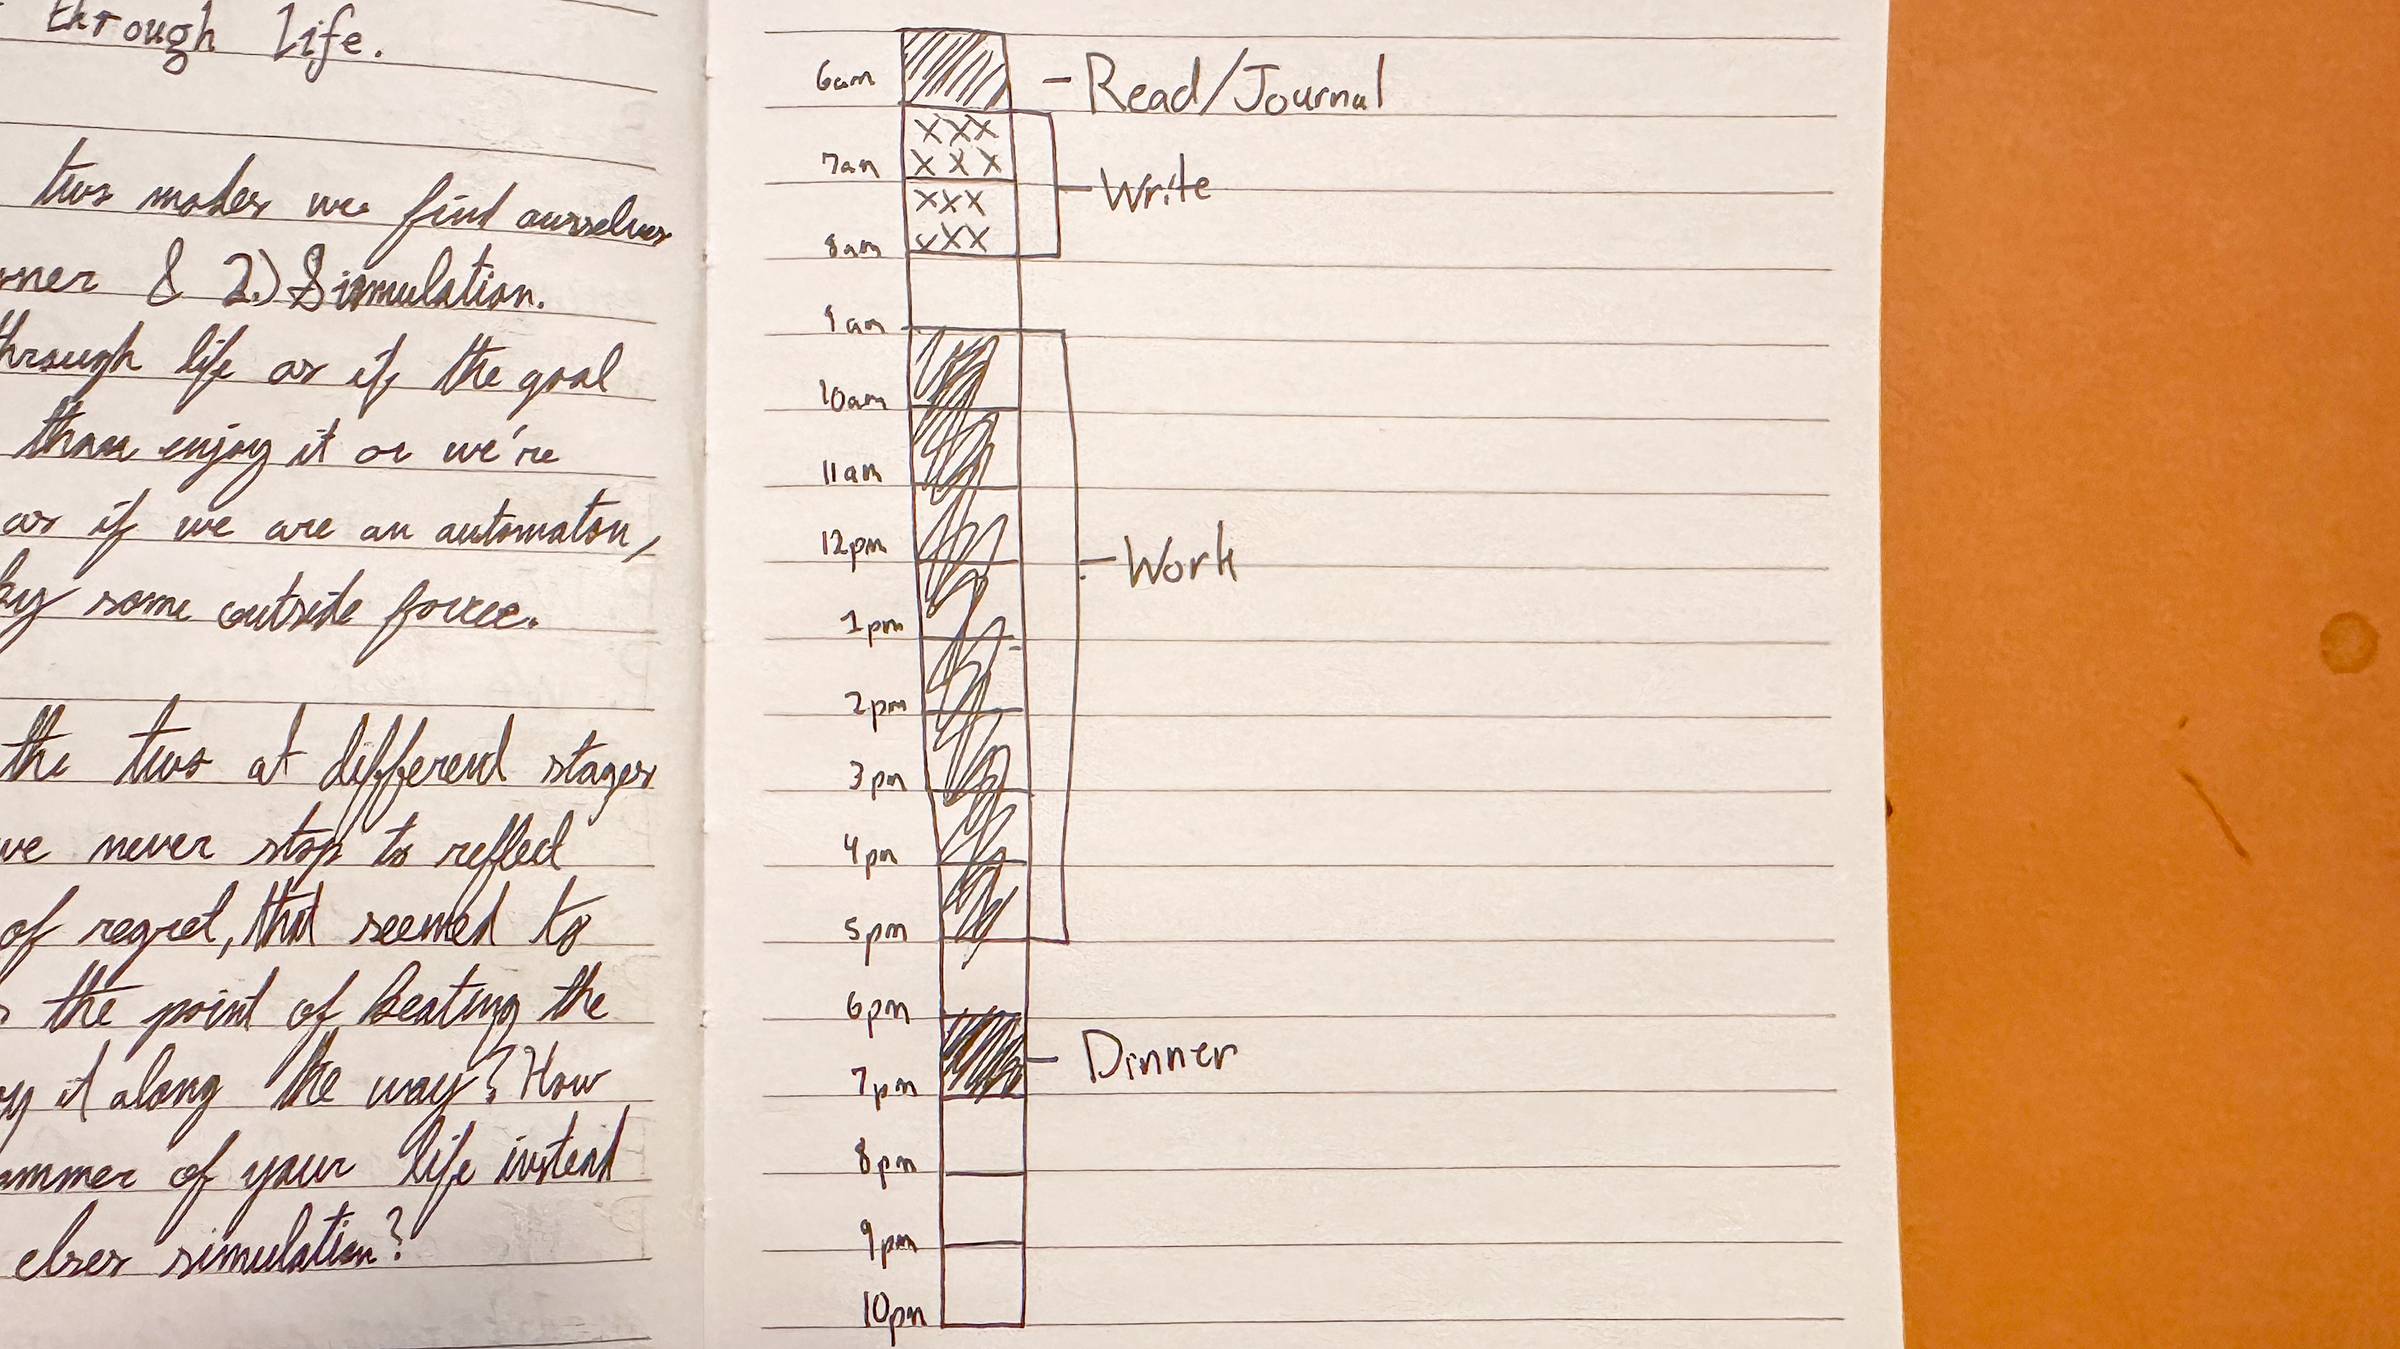 through life.
two modes we find ourselves
oner & 2.) Simulation.
through life as if the goal
than enjoy it or we're
as if we are an automaton,
by some outside force.
the two at different stages
we never stop to reflect
of regret, that seemed to
the point of beating the
it along the way? How
ammer of your life instead
elses simulation?
6am - Read/Journal
7am
Write
8am
9am
10am
11am
12pm
Work
1pm
2pm
3pm
4pm
5pm
6pm
Dinner
7pm
8pm
9pm
10pm